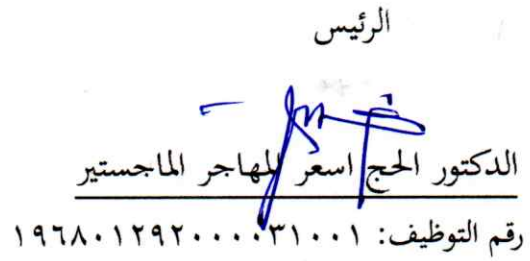 الرئيس
الدكتور الحج اسعر المهاجر الماجستير
رقم التوظيف: ١٩٦٨٠١٢٩٢٠٠٠٠٣١٠٠١